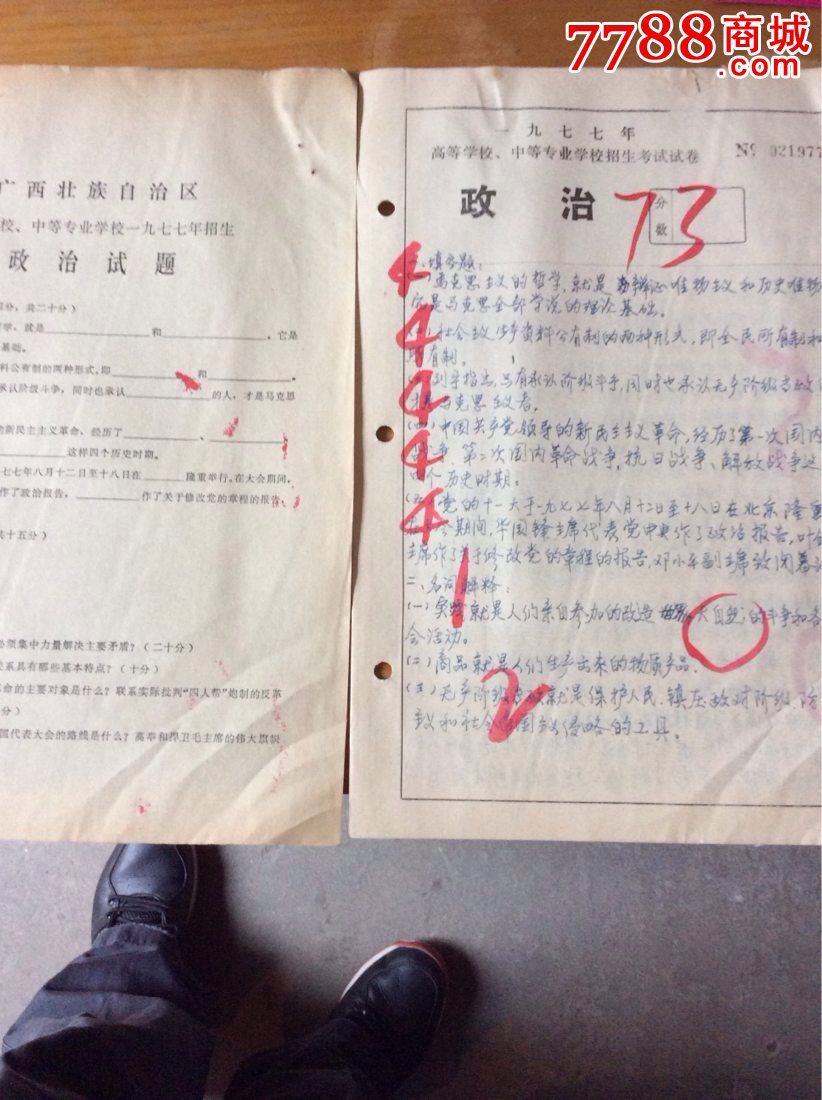 7788商城
.com
广西壮族自治区
校、中等专业学校一九七七年招生
政治试题
四分，共二十分）
学，就是 和 。它是
基础。
料公有制的两种形式，即 和 。
承认阶级斗争，同时也承认 的人，才是马克思
的新民主主义革命、经历了 、
这样四个历史时期。
七七年八月十二日至十八日在 隆重举行。在大会期间，
作了政治报告， 作了关于修改党的章程的报告，
共十五分）
必须集中力量解决主要矛盾？（二十分）
关系具有哪些基本特点？（十分）
革命的主要对象是什么？联系实际批判“四人帮”炮制的反革
分）
国代表大会的路线是什么？高举和捍卫毛主席的伟大旗帜
一九七七年
高等学校、中等专业学校招生考试试卷
No 021977
政治
分数
73
一、填空题：
4
(一)马克思主义的哲学，就是辩证唯物主义和历史唯物
它是马克思全部学说的理论基础。
4
(二)社会主义生产资料公有制的两种形式，即全民所有制和
有制。
4
列宁指出，只有承认阶级斗争，同时也承认无产阶级专政
马克思主义者。
4
(四)中国共产党领导的新民主主义革命，经历了第一次国内
战争、第二次国内革命战争，抗日战争、解放战争这
四个历史时期。
4
(五)党的十一大于一九七七年八月十二日至十八日在北京隆重
大会期间，华国锋主席代表党中央作了政治报告，叶
主席作了关于修改党的章程的报告，邓小平副主席致闭幕
二、名词解释：
1
(一)实践就是人们亲自参加的改造大自然的斗争和各
会活动。
(二)商品就是人们生产出来的物质产品。
2
(三)无产阶级专政就是保护人民、镇压敌对阶级、防
主义和社会帝国主义侵略的工具。